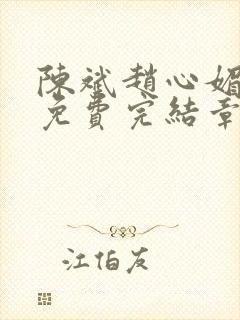 陳斌趙心媚
免費完結章
江伯友